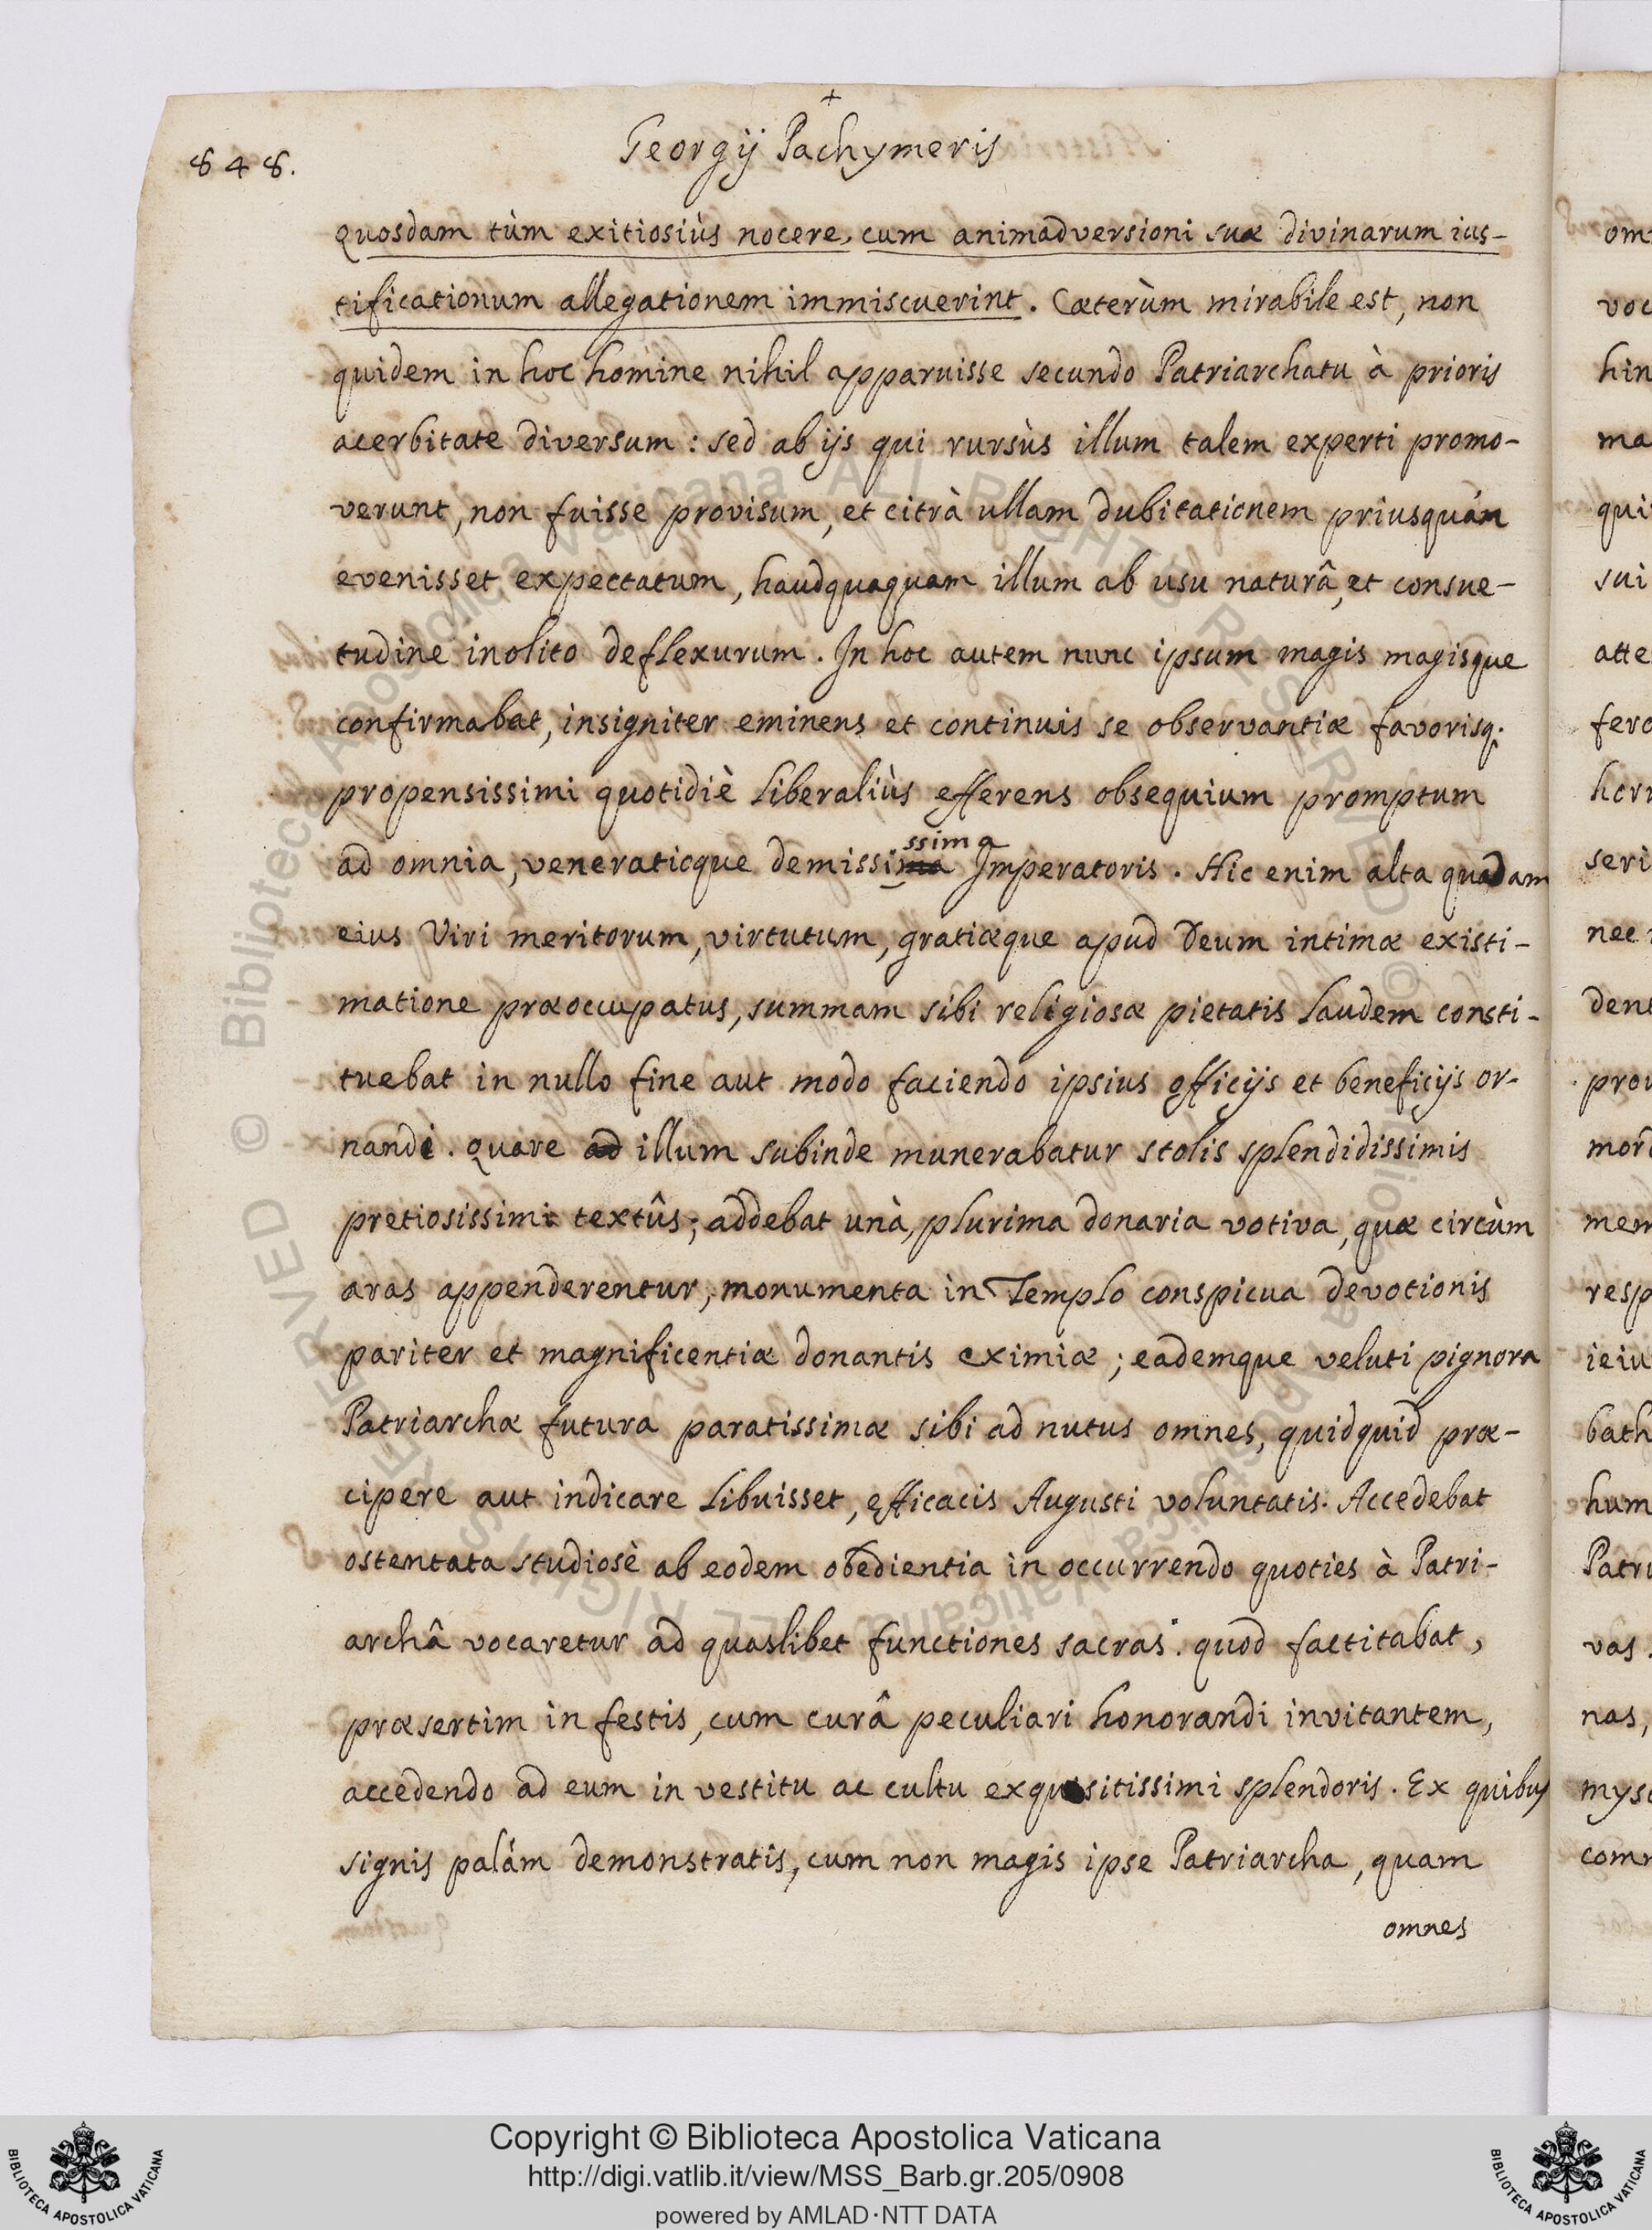 +
848.
Georgij Pachymeris
quosdam tùm exitiosiùs nocere, cum animadversioni suæ divinarum ius-
tificationum allegationem immiscuerint. Cæterùm mirabile est, non
quidem in hoc homine nihil apparuisse secundo Patriarchatu à prioris
acerbitate diversum: sed ab ijs qui rursùs illum talem experti promo-
verunt, non fuisse provisum, et citrà ullam dubitationem priusquám
evenisset expectatum, haudquaquam illum ab usu naturâ, et consue-
tudine inolito deflexurum. In hoc autem nunc ipsum magis magisque
confirmabat, insigniter eminens et continuis se observantiæ favorisq;
propensissimi quotidiè liberaliùs efferens obsequium promptum
ssima
ad omnia, veneratioque demissima Imperatoris. Hic enim alta quadam
eius Viri meritorum, virtutum, gratiæque apud Deum intimæ existi-
matione præoccupatus, summam sibi religiosæ pietatis laudem consti-
tuebat in nullo fine aut modo faciendo ipsius officijs et beneficijs or-
nandi. quare ad illum subinde munerabatur stolis splendidissimis
pretiosissimi textûs; addebat unà, plurima donaria votiva, quæ circùm
aras appenderentur, monumenta in Templo conspicua devotionis
pariter et magnificentiæ donantis eximiæ; eademque veluti pignora
Patriarchæ futura paratissimæ sibi ad nutus omnes, quidquid præ-
cipere aut indicare libuisset, efficacis Augusti voluntatis. Accedebat
ostentata studiosè ab eodem obedientia in occurrendo quoties à Patri-
archâ vocaretur ad quaslibet functiones sacras: quod factitabat,
præsertim in festis, cum curâ peculiari honorandi invitantem,
accedendo ad eum in vestitu ac cultu exquisitissimi splendoris. Ex quibus
signis palám demonstratis, cum non magis ipse Patriarcha, quam
omnes
Copyright © Biblioteca Apostolica Vaticana
http://digi.vatlib.it/view/MSS_Barb.gr.205/0908
powered by AMLAD·NTT DATA
BIBLIOTECA APOSTOLICA VATICANA
BIBLIOTECA APOSTOLICA VATICANA